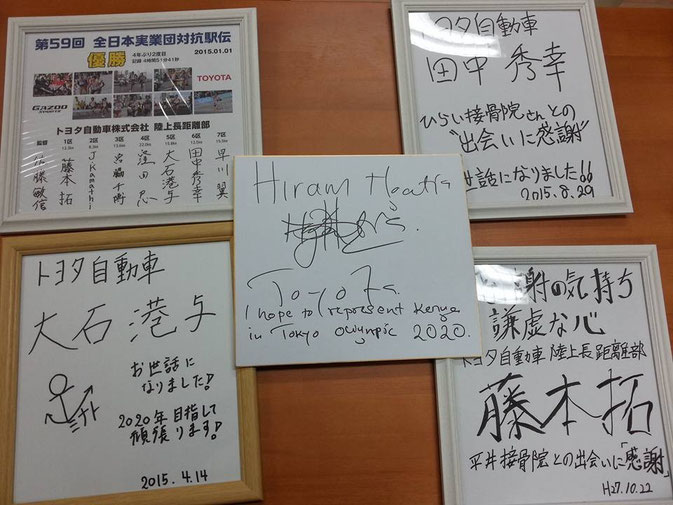 第59回 全日本実業団対抗駅伝
優勝
4年ぶり2度目
記録 4時間51分41秒
2015.01.01
GAZOO
TOYOTA
トヨタ自動車株式会社 陸上長距離部
監督 1区 2区 3区 4区 5区 6区 7区
佐藤敏信
藤本 拓
J.Kamathi
宮脇千博
窪田 忍
大石港与
田中秀幸
早川 翼
トヨタ自動車
田中 秀幸
ひらい接骨院さんとの
"出会いに感謝"
話になりました!!
2015.8.29
Hiram
Toyota.
I hope to represent Kenya
in Tokyo Olympic 2020.
トヨタ自動車
大石 港与
お世話に
なりました!
ミナト
2020年目指して
頑張ります!
2015.4.14
謝の気持ち
謙虚な心
トヨタ自動車 陸上長距離部
藤本 拓
平井接骨院との出会いに「感謝」
H27.10.22